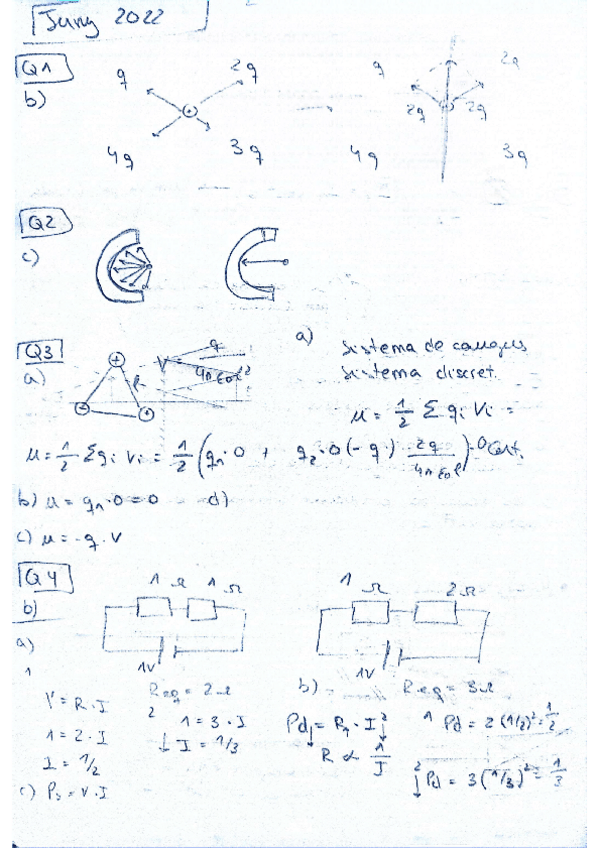 Juny 2022
Q1
b)
q 2q
4q 3q
q 2q
2q 2q
4q 3q
Q2
c)
Q3
a)
+
- -
l
V = q / 4πε₀l²
a) Sistema de càrregues
Sistema discret.
μ = 1/2 Σ qi Vi =
μ = 1/2 Σ qi Vi = 1/2 (q1·0 + q2·0 (-q) · 2q / 4πε₀l)
b) μ = q1·0 = 0 d)
c) μ = -q·V
Q4
b)
1 Ω 1 Ω
1V
1 Ω 2 Ω
1V
a)
1
Req = 2Ω
V = R·I
1 = 2·I
I = 1/2
2
1 = 3·I
↓ I = 1/3
b) Req = 3Ω
Pd↓ = R1·I²↓
R ∝ 1/I
1 Pd = 2 (1/2)² = 1/2
2 ↓Pd = 3 (1/3)² = 1/3
c) Ps = V·I